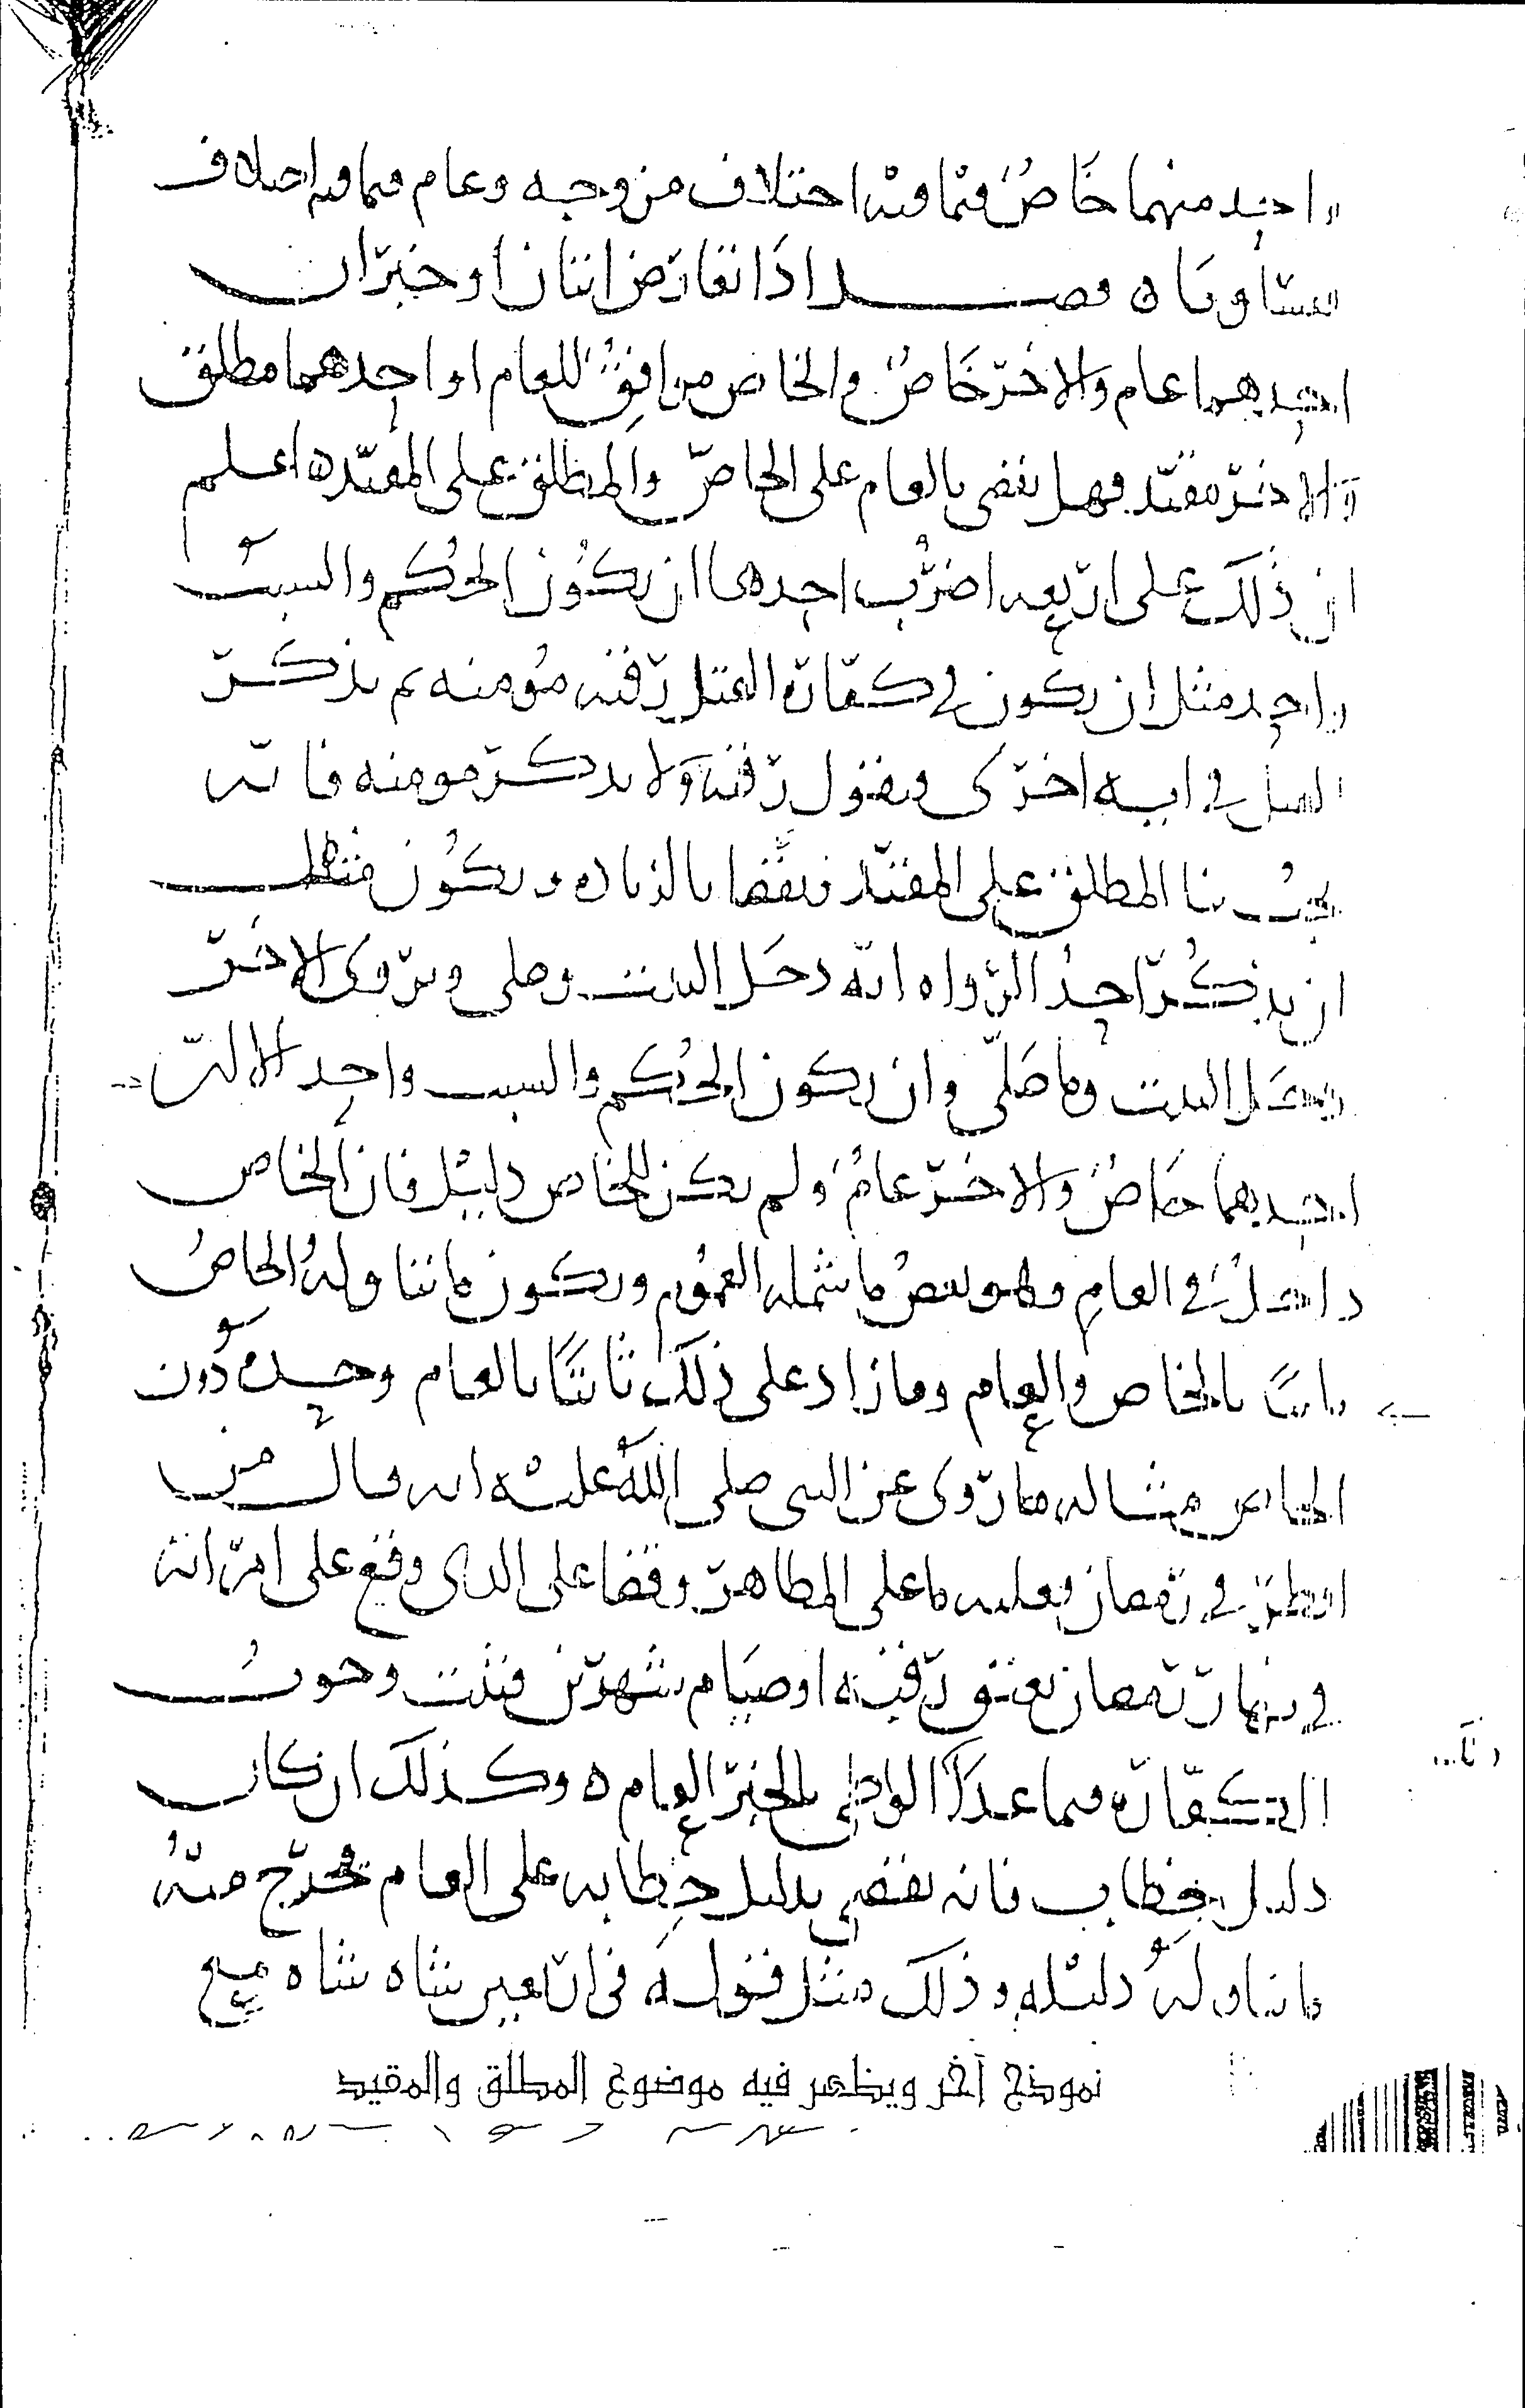 واحد منهما خاصٌ فيما فيه اختلاف من وجه وعام فيما فيه اختلاف
تساويا ه فصل اذا تعارض اثنان او خبران
احدهما عام والاخر خاصٌ والخاص موافقٌ للعام او احدهما مطلق
والاخر مقيّد فهل نقضى بالعام على الخاصّ والمطلق على المقيّد ه اعلم
ان ذلك على اربعه اضرُب احدها ان يكوُن الحُكم والسبب
واحد مثل ان يكون في كفّارة القتل رقبه مُومنه ثم يذكر
القتل في ايه اخرى فيقول رقبه ولا يذكر مومنه فانه
يجبُ بنا المطلق على المقيّد فيقضا بالزياده ويكوُن مثله
ان يذكُر احدُ الرواه انّه دخل البيت وصلى ويروى الاخر
دخَل البيت وما صَلّى وان يكون الحُكم والسبب واحد الا ان
احدهما خاصٌ والاخر عامٌ ولم يكن للخاص دليل فان الخاص
داخلٌ في العام وهو بعضُ ما شمله العموُم ويكون ما تناوله الخاصُ
ثابتًا بالخاص والعام وما زاد على ذلك ثابتًا بالعام وحده دُون
الخاص مثاله ما رُوى عن النبى صلى اللهُ عليه انه قال من
افطر في رمضان فعليه ما على المظاهر وقضا على الذى وقع على امراته
في نهار رمضان بعتق رقبه او صيام شهرين فثبت وجوبُ
الكفّاره فيما عدا الواطى بالخبر العام ه وكذلك ان كان
دليل خطاب فانه يقضى بدليل خطابه على العام فيخرج منه
ما تناوله دليله وذلك مثل قوله في اربعين شاه شاه مع
نموذج آخر ويظهر فيه موضوع المطلق والمقيد